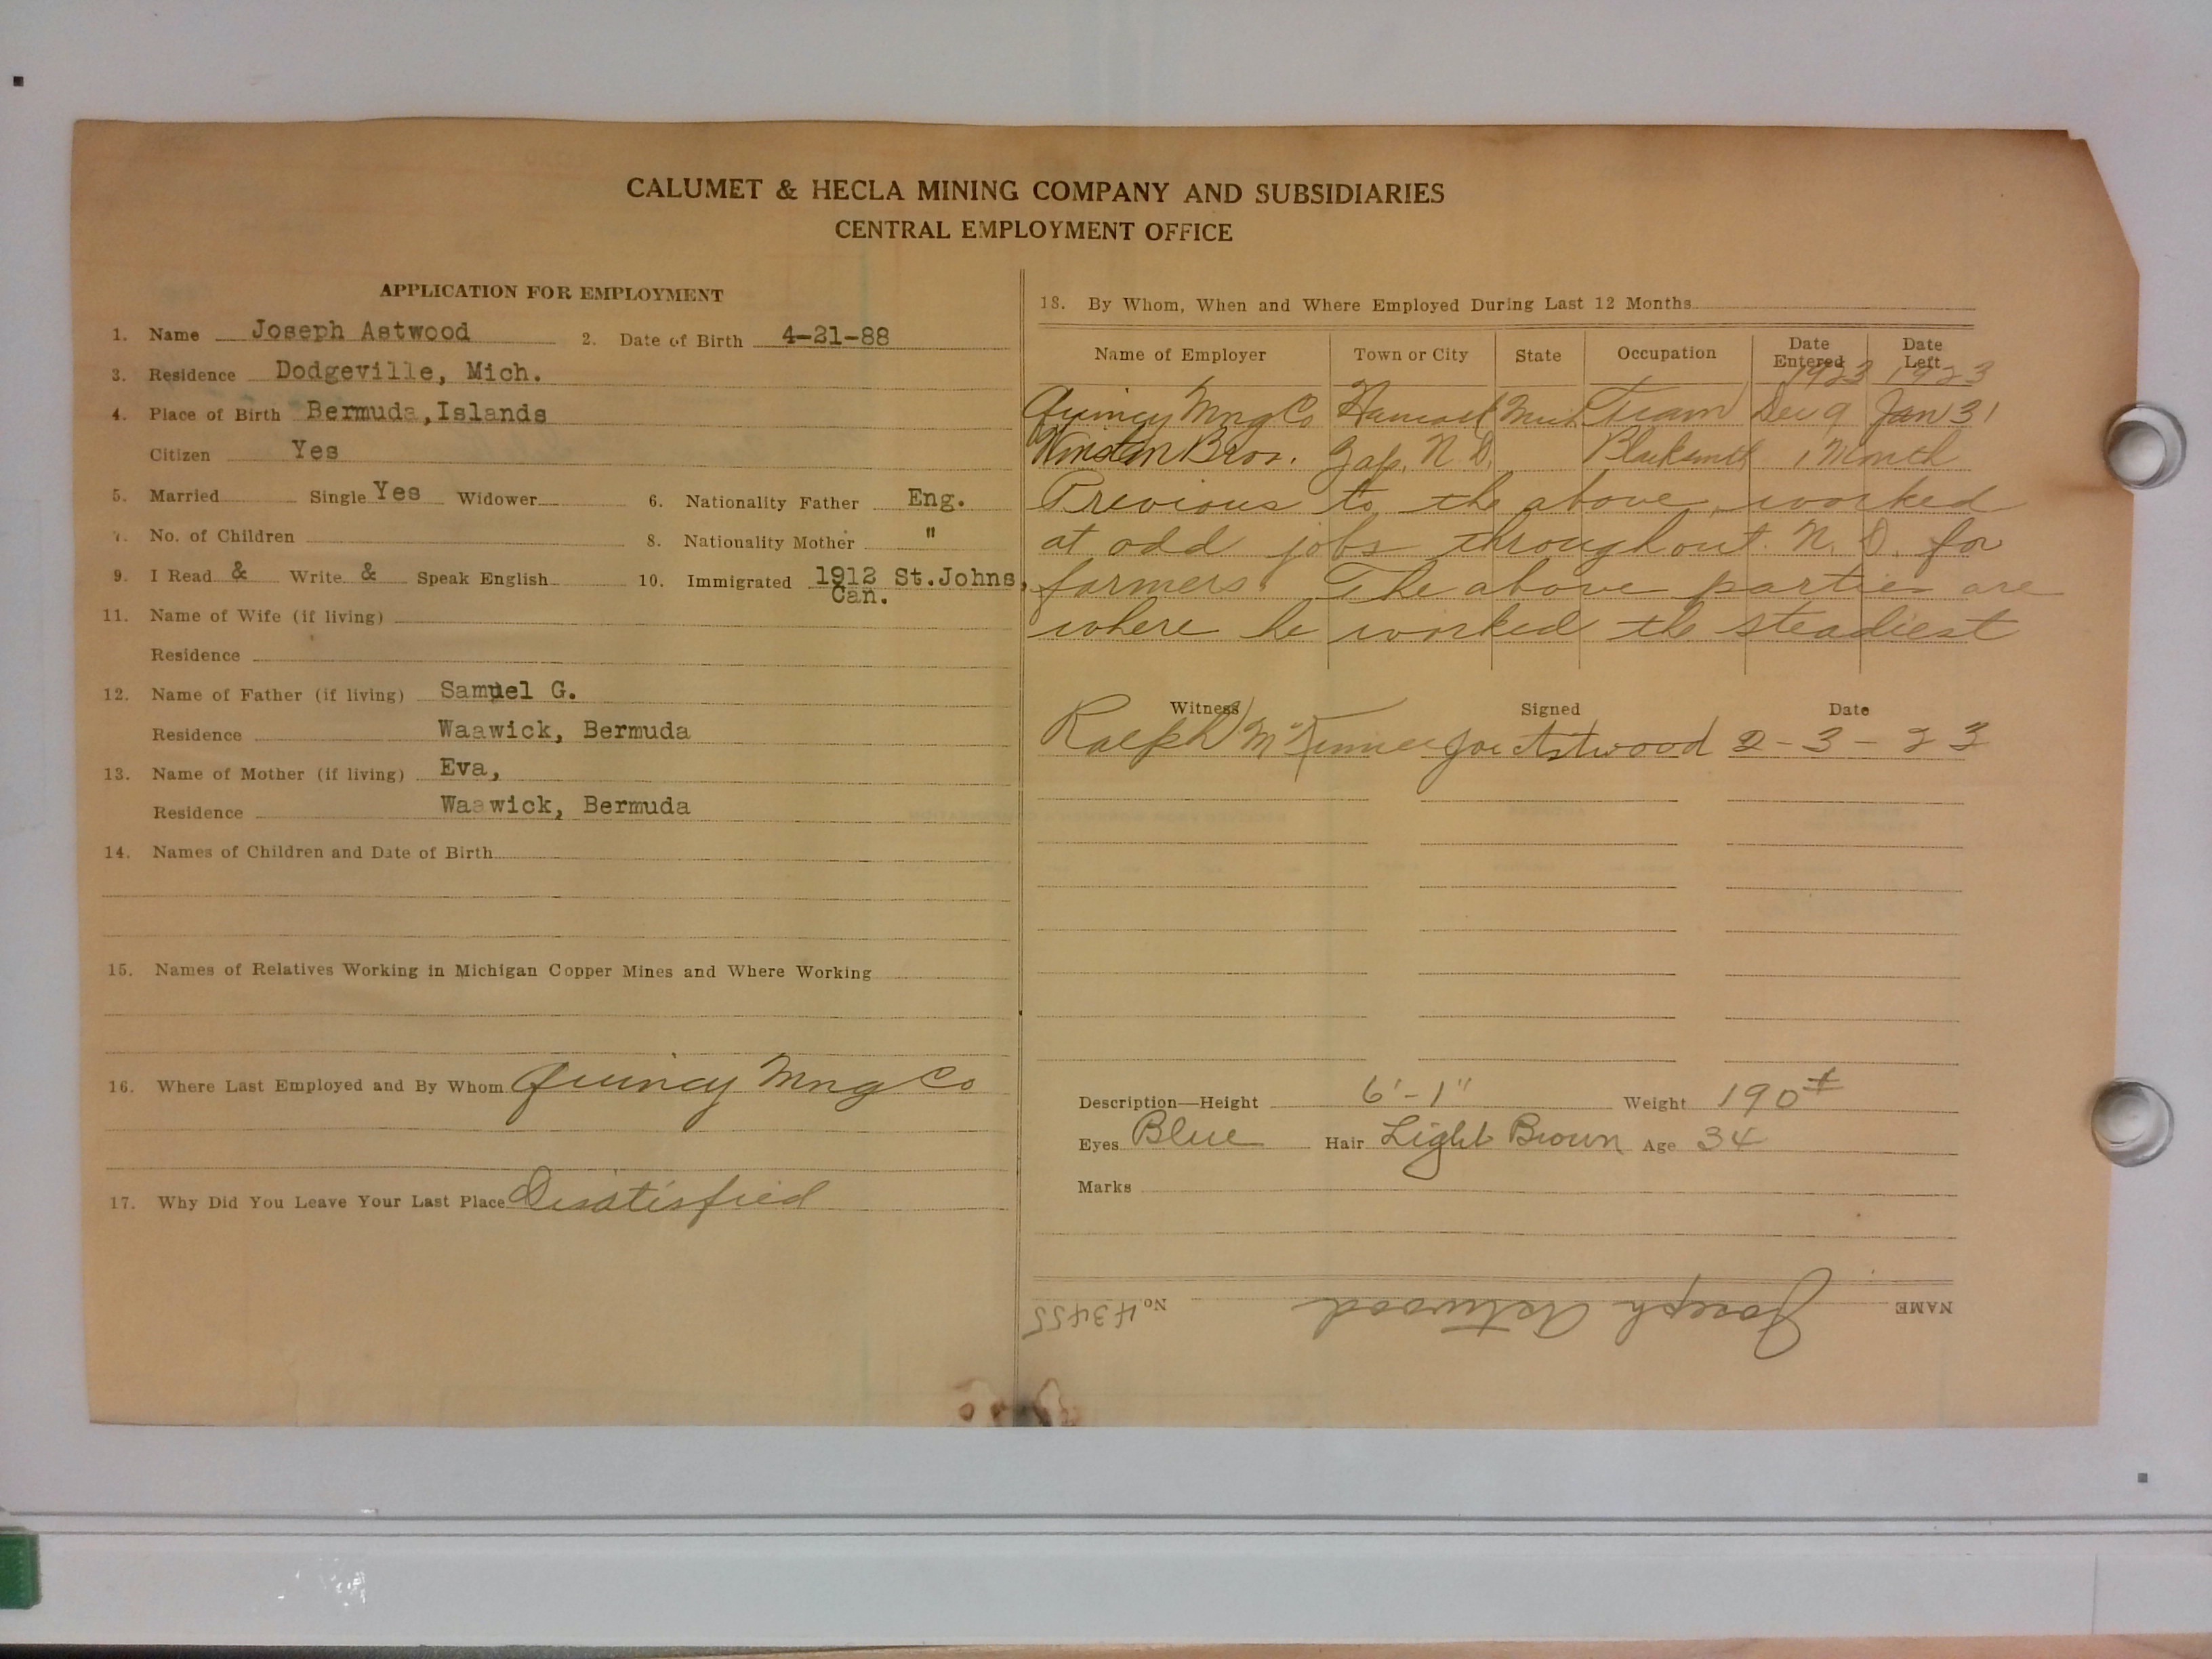 CALUMET & HECLA MINING COMPANY AND SUBSIDIARIES
CENTRAL EMPLOYMENT OFFICE
APPLICATION FOR EMPLOYMENT
1. Name Joseph Astwood 2. Date of Birth 4-21-88
3. Residence Dodgeville, Mich.
4. Place of Birth Bermuda,Islands
Citizen Yes
5. Married Single Yes Widower 6. Nationality Father Eng.
7. No. of Children 8. Nationality Mother "
9. I Read & Write & Speak English 10. Immigrated 1912 St.Johns,
Can.
11. Name of Wife (if living)
Residence
12. Name of Father (if living) Samuel G.
Residence Waawick, Bermuda
13. Name of Mother (if living) Eva,
Residence Waawick, Bermuda
14. Names of Children and Date of Birth
15. Names of Relatives Working in Michigan Copper Mines and Where Working
16. Where Last Employed and By Whom Quincy Mng Co
17. Why Did You Leave Your Last Place Disatisfied
18. By Whom, When and Where Employed During Last 12 Months
Name of Employer Town or City State Occupation Date Entered Date Left
1923 1923
Quincy Mng Co Hancock Mich Tram Dec 9 Jan 31
Winston Bros. Zap, N. D. Blacksmith 1 Month
Previous to the above, worked
at odd jobs throughout N. D. for
farmers. The above parties are
where he worked the steadiest
Witness Signed Date
Ralph Joe Astwood 2-3-23
Description—Height 6'-1" Weight 190#
Eyes Blue Hair Light Brown Age 34
Marks
NAME Joseph Astwood No. 43455